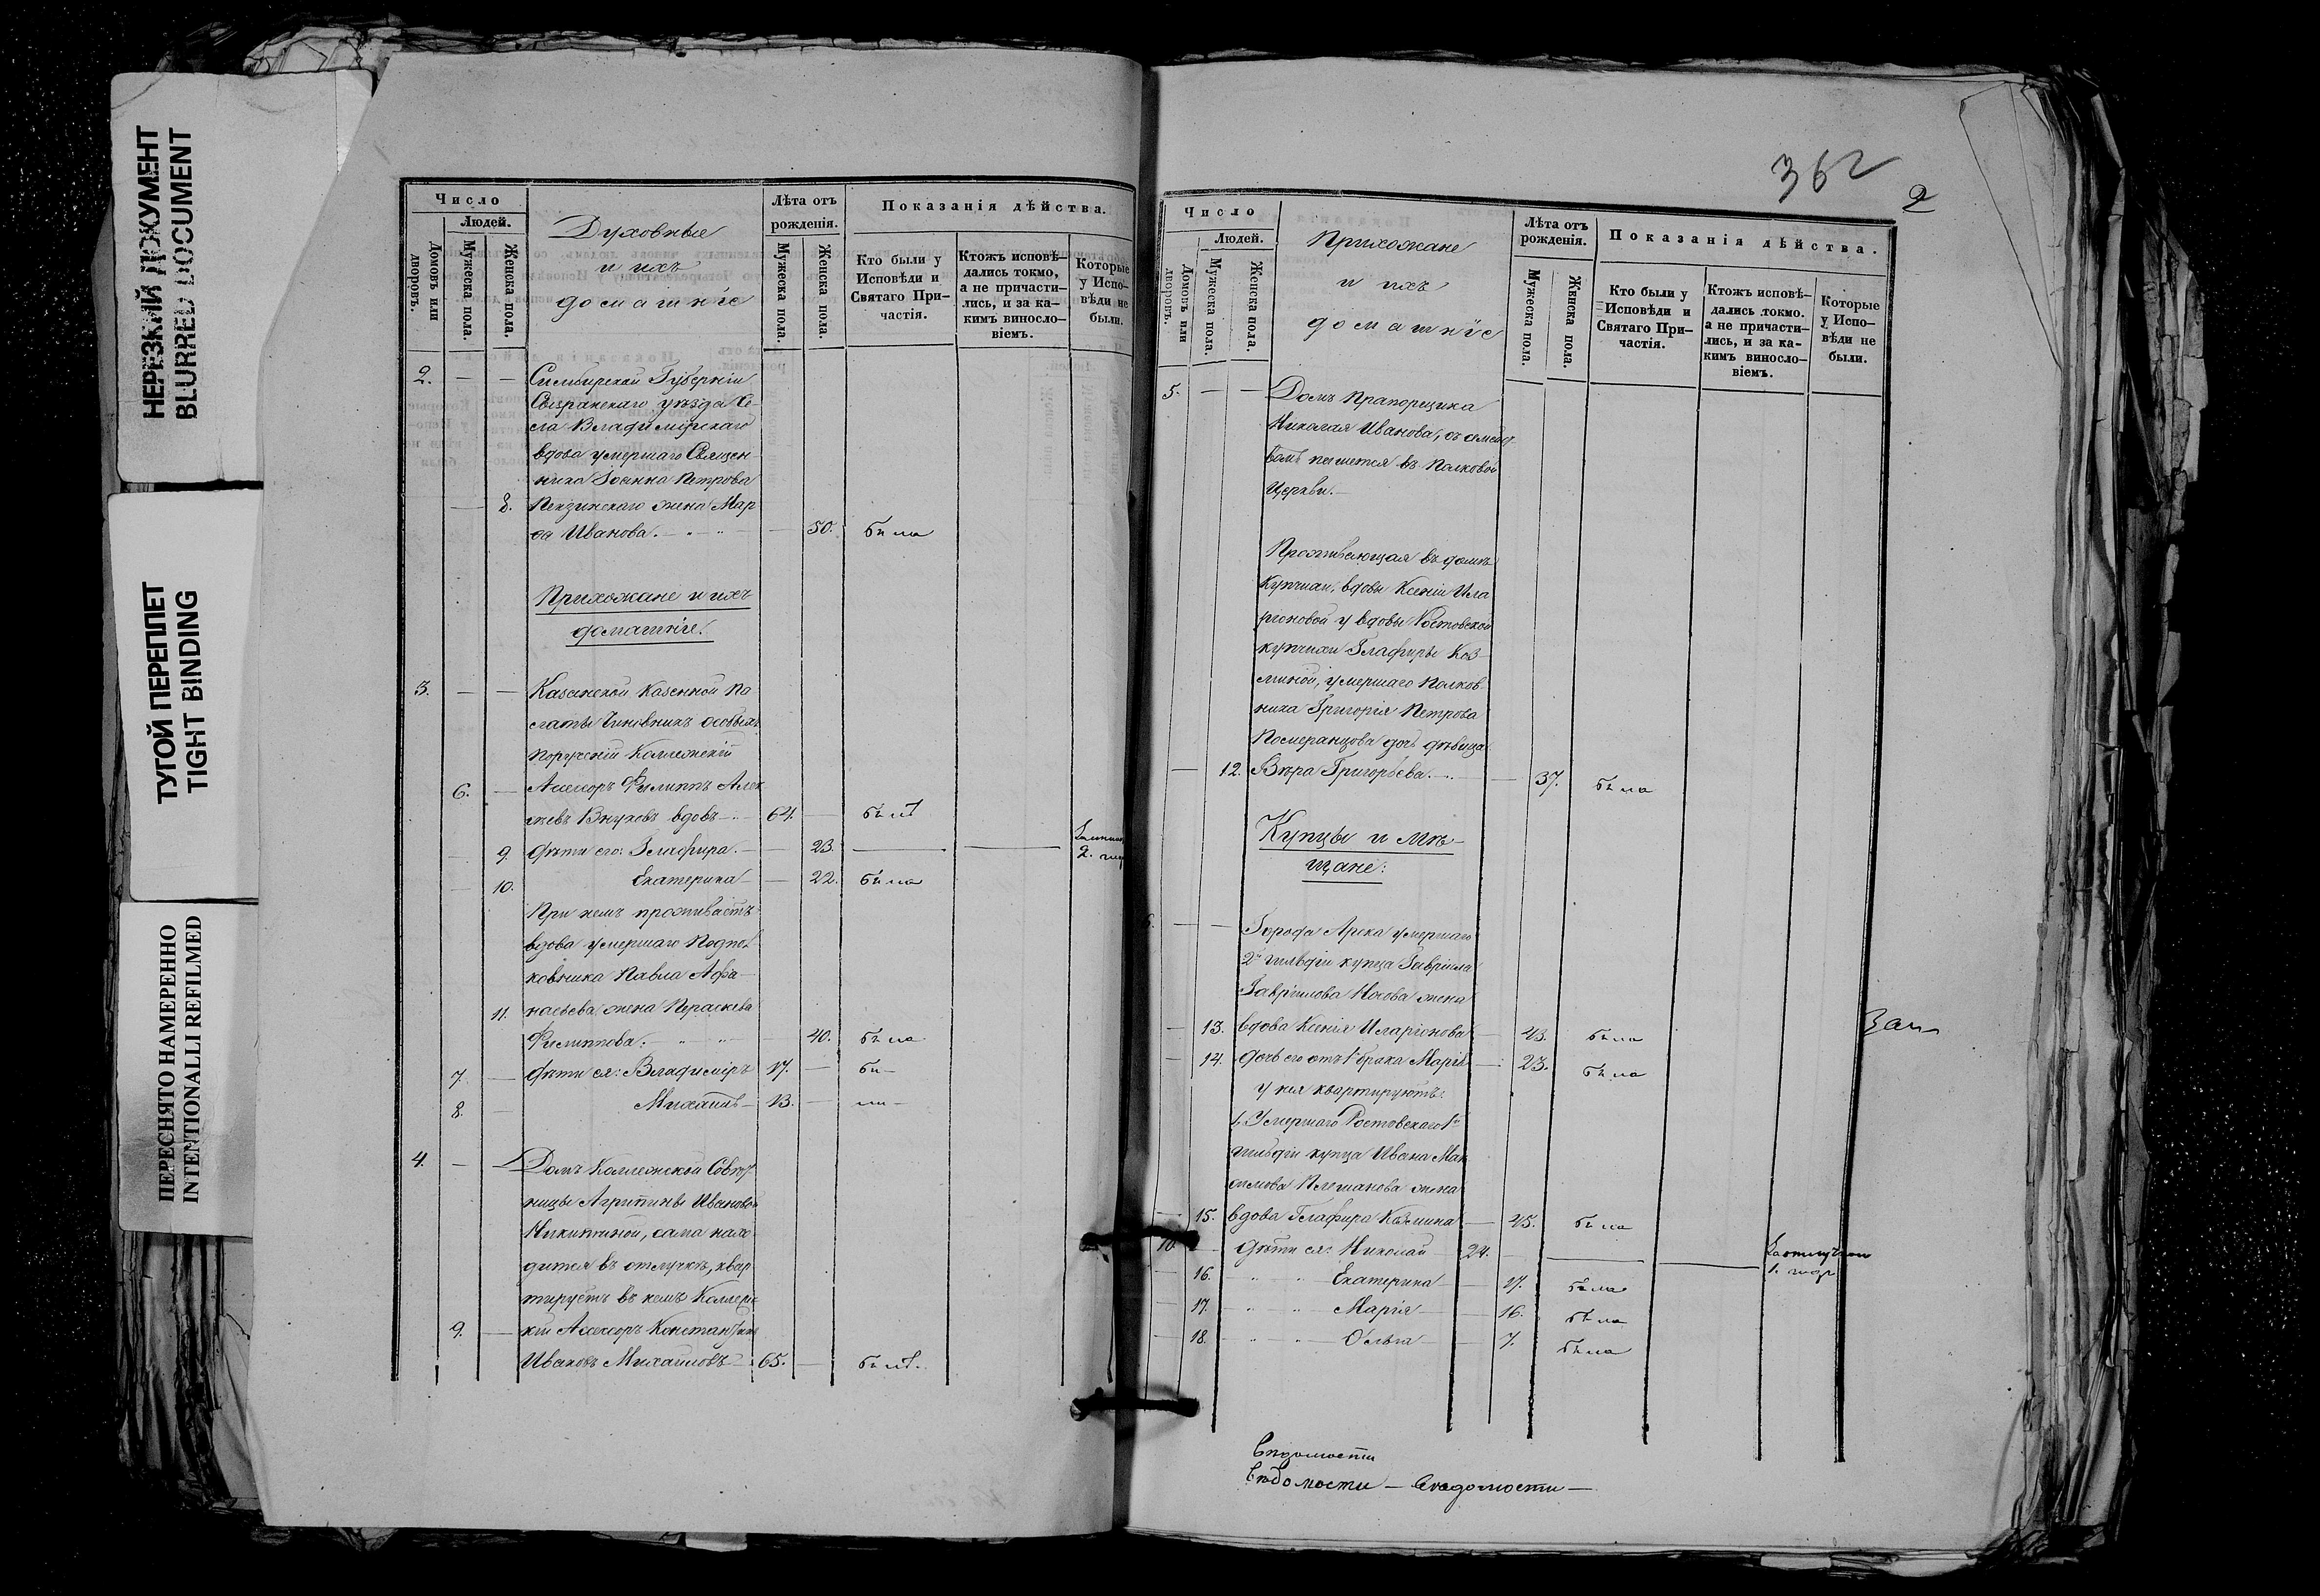 НЕРЕЗКИЙ ДОКУМЕНТ
BLURRED DOCUMENT
ТУГОЙ ПЕРЕПЛЕТ
TIGHT BINDING
ПЕРЕСНЯТО НАМЕРЕННО
INTENTIONALLI REFILMED
Число
Людей.
Домовъ или дворовъ.
Мужеска пола.
Женска пола.
Духовные
и ихъ
домашніе
Лѣта отъ
рожденія.
Мужеска пола.
Женска пола.
Показанія дѣйства.
Кто были у
Исповѣди и
Святаго При-
частія.
Ктожъ исповѣ-
дались токмо,
а не причасти-
лись, и за ка-
кимъ винсло-
віемъ.
Которые
у Испо-
вѣди не
были.
2. — — Симбирской Губерніи
Сызранскаго уѣзда Се-
ла Владимірскаго
вдова умершаго Священ-
ника Іоанна Петрова
— 8. Пензинскаго жена Мар
фа Иванова. — 50. была
Прихожане и ихъ
домашніе.
3. — — Казанской Казенной Па
латы Чиновникъ особыхъ
порученій Коллежскій
6. — Ассесоръ Филиппъ Алек
сѣевъ Внуковъ вдовъ — 64. — былъ
— 9. дѣти его: Глафира. — 23. — —
2.
— 10. Екатерина — 22. была
При немъ проживаетъ
вдова умершаго Подпол
ковника Павла Афа-
11. насьева жена Параскева
Филиппова. — 40. была
7. — дѣти ея: Владиміръ 17. —
8. — Михаилъ — 13. —
4. — — Домъ Коллежской Совѣт
ницы Агрипины Ивановой
Никитиной, сама нахо
дится въ отлучкѣ, квар
тируетъ въ немъ Коллежс
9. — кій Ассесоръ Константинъ
Ивановъ Михайловъ 65. — былъ.
362
2
Число
Людей.
Домовъ или дворовъ.
Мужеска пола.
Женска пола.
Прихожане
и ихъ
домашніе
Лѣта отъ
рожденія.
Мужеска пола.
Женска пола.
Показанія дѣйства.
Кто были у
Исповѣди и
Святаго При-
частія.
Ктожъ исповѣ-
дались токмо.
а не причасти-
лись, и за ка-
кимъ винсло-
віемъ.
Которые
у Испо-
вѣди не
были.
5. — — Домъ Прапорщика
Николая Иванова, съ семей
вомъ пишется въ Полковой
Церкви.—
Проживающая въ домѣ
Купчих. вдовы Ксеніи Ила
ріоновой у вдовы Ростовской
купчихи Глафиры Коз-
миной, умершаго Полков
ника Григорія Петрова
Померанцова дочь дѣвица
— 12. Вѣра Григорьева. — 37. была
Купцы и мѣ-
щане:
— — Города Арска умершаго
2й гильдіи купца Гавріила
Гавріилова Носова жена
— 13. вдова Ксенія Иларіонова — 43. была
— 14. дочь его отъ 1 брака Марія — 23. была
у нея квартируютъ:
1, Умершаго Ростовскаго 1й
гильдіи купца Ивана Мак
симова Плешанова жена
— 15. вдова Глафира Козмина — 45. была
10. — дѣти ея: Николай 24. — — — За отлучкою
1. годъ
— 16. Екатерина — 17. была
— 17. Марія — 16. была
— 18. Ольга — 7. была
Зап
Вѣдомости
Вѣдомости — Вѣдомости —